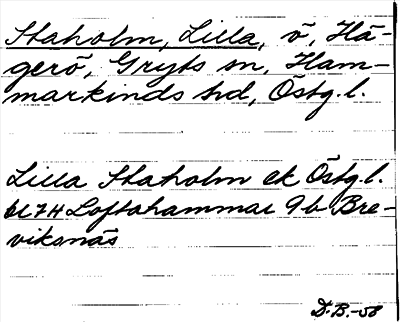 Staholm, Lilla, ö, Hä-
gerö, Gryts sn, Ham-
markinds hd, Östg. l.
Lilla Staholm ek Östg. l.
bl 74 Loftahammar 9b Bre-
viksnäs
D.B.-58